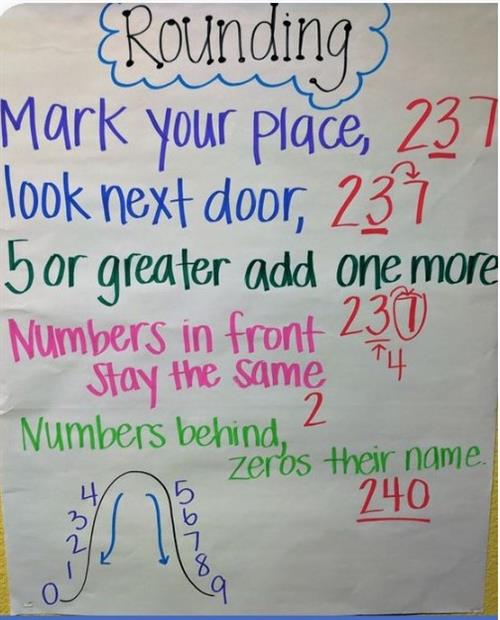 Rounding
Mark your place, 237
look next door, 237
5 or greater add one more
Numbers in front 237
stay the same 4
2
Numbers behind,
zeros their name.
240
4 5
3 6
2 7
1 8
0 9